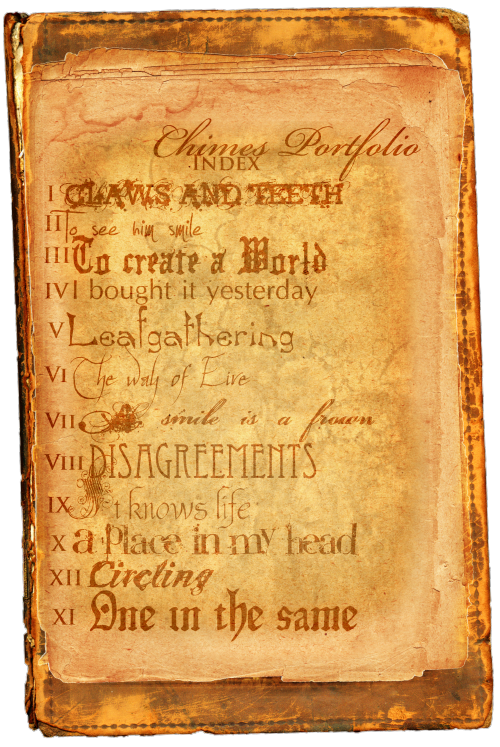 Chimes Portfolio
INDEX
I CLAWS AND TEETH
II To see him smile
III To create a World
IV I bought it yesterday
V Leafgathering
VI The way of Eire
VII A smile is a frown
VIII DISAGREEMENTS
IX It knows life
X a Place in my head
XII Circling
XI One in the same